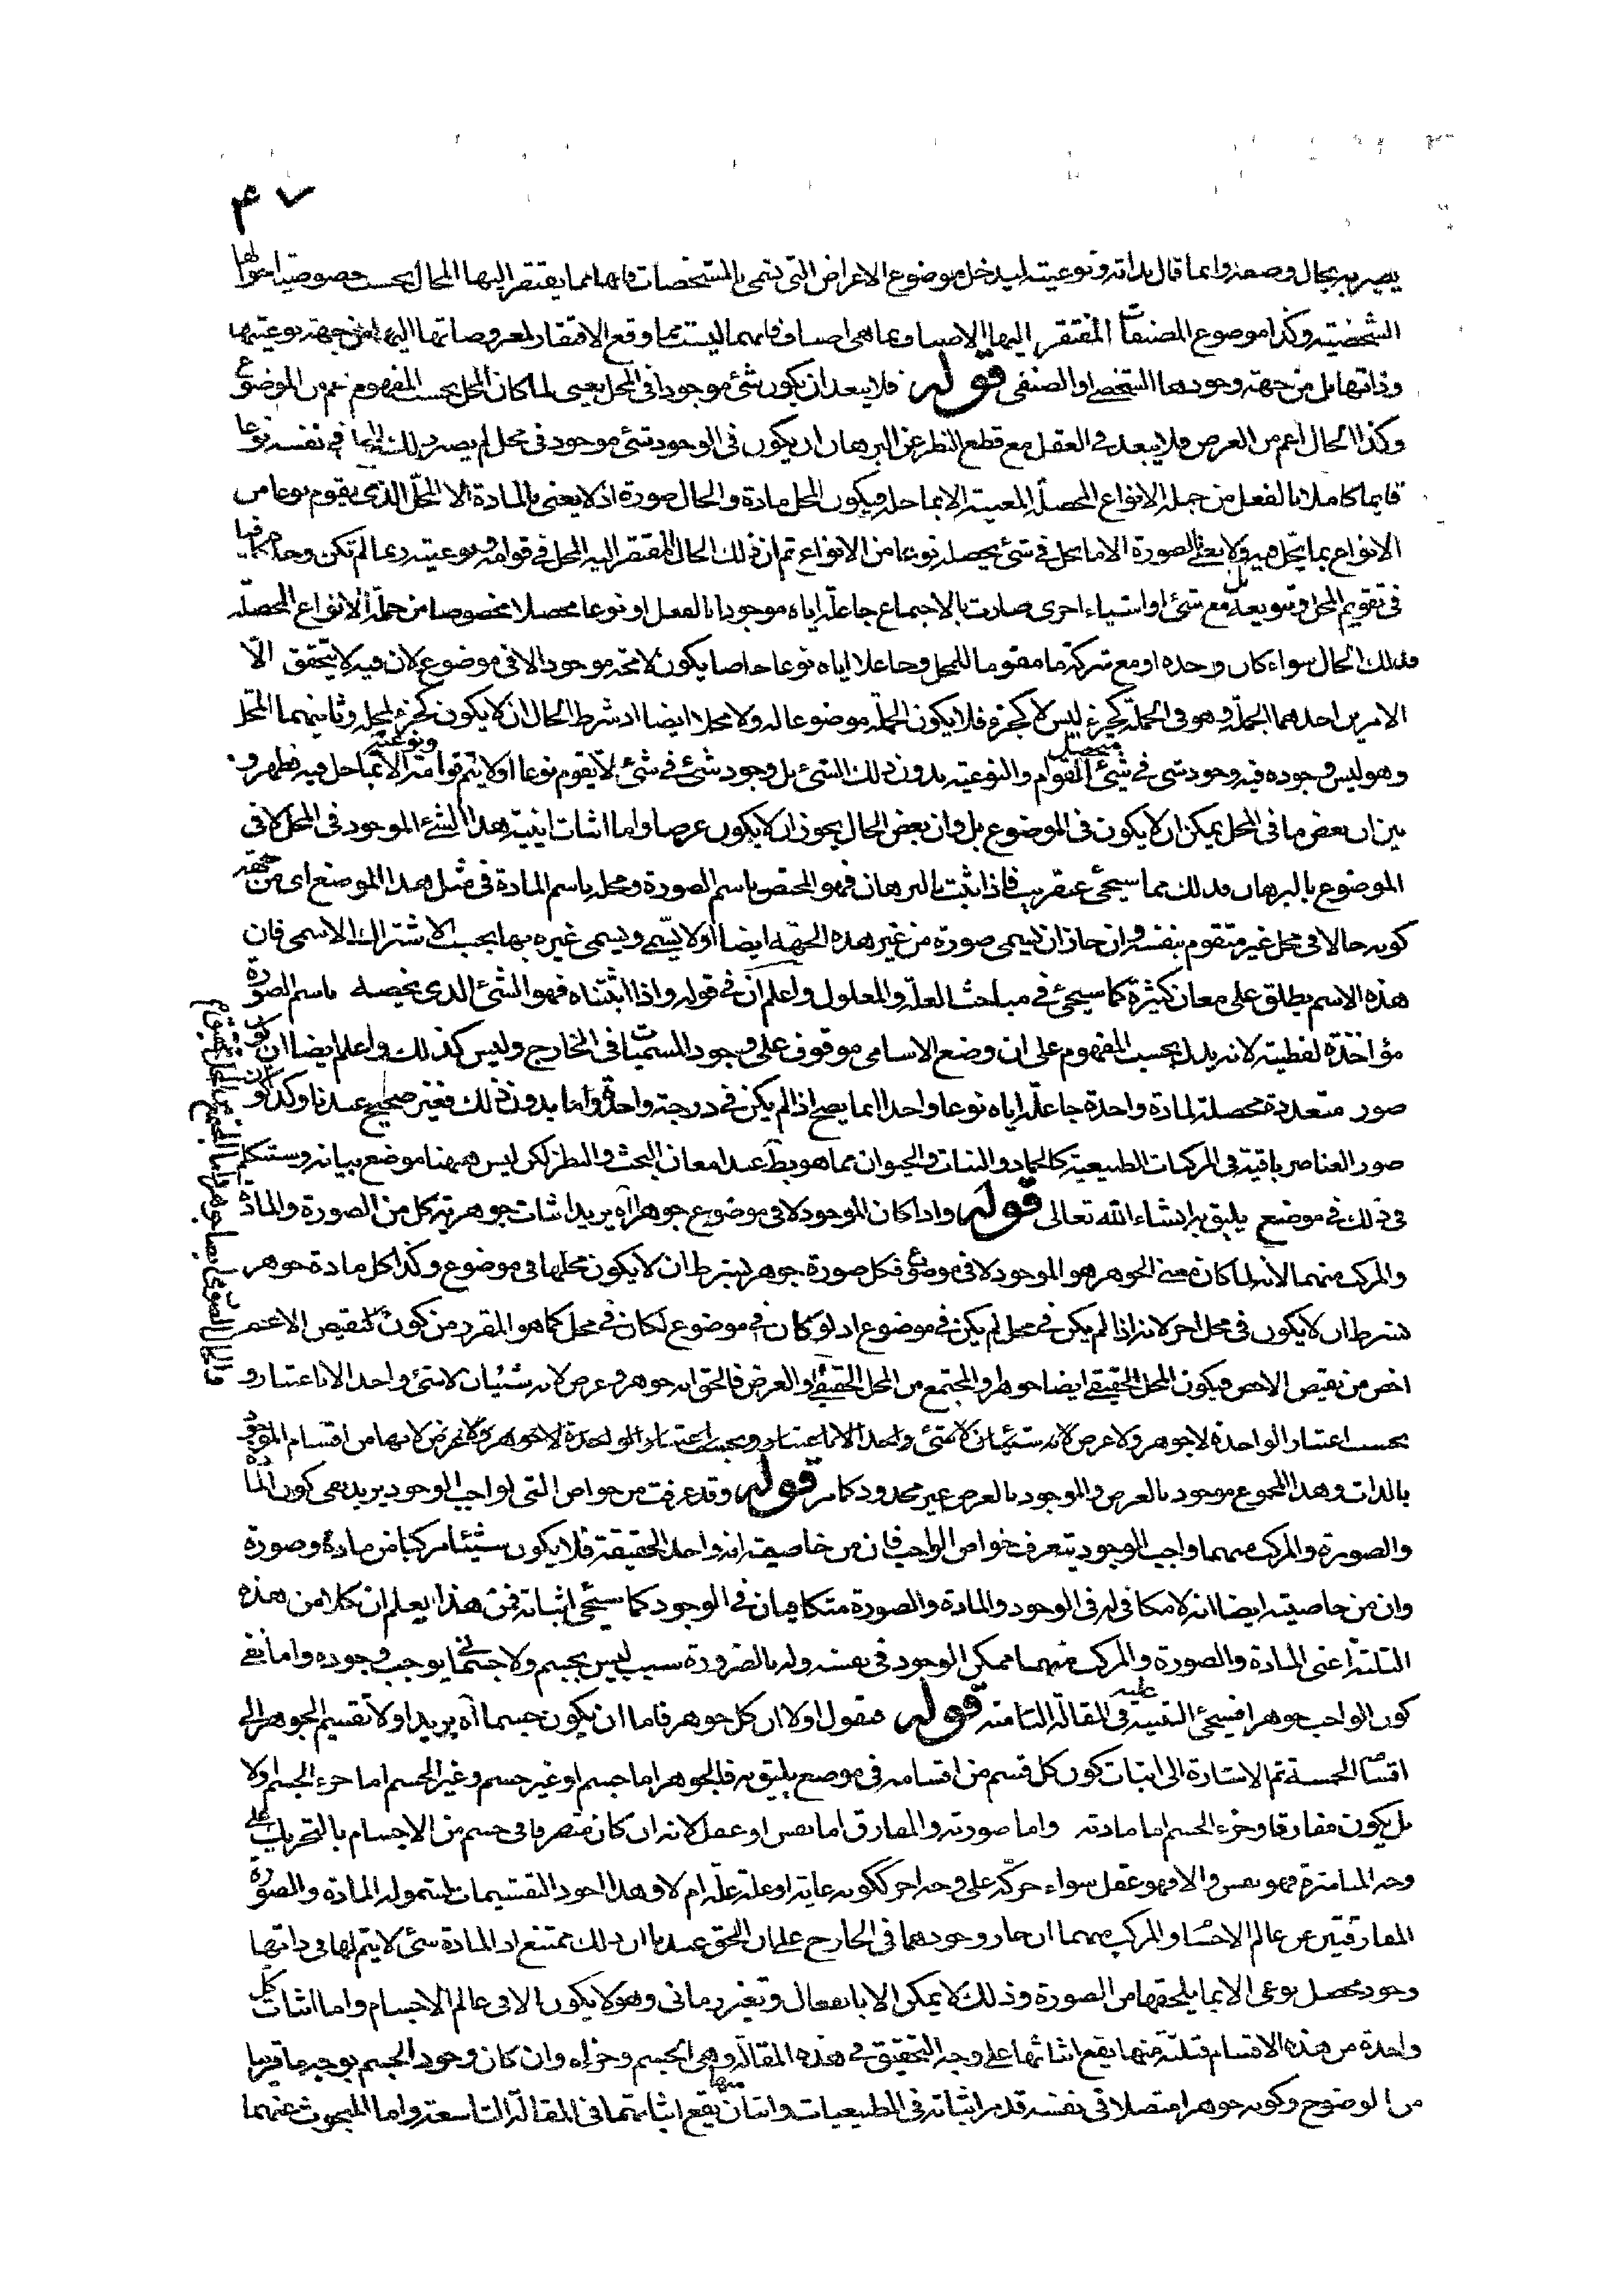 ۴۷
يصير به بحال وصفة وانما قال بذاته ونوعيته ليدخل موضوع الاعراض التى تسمى بالمشخصات فانها مما يفتقر اليها المحال بحسب خصوصيات احوالها
الشخصية وكذا موضوع المصنفات المفتقر اليها الاصناف بما هى اصناف فانهما ليست مما وقع الافتقار لمعروضاتها اليها من جهة نوعيتها
وذاتها بل من جهة وجودها الشخصى او الصنفى قوله فلا يبعد ان يكون شئ موجودا فى المحل يعنى لما كان المحل بحسب المفهوم اعم من الموضوع
وكذا الحال اعم من العرض فلا يبعد فى العقل مع قطع النظر عن البرهان ان يكون فى الوجود شئ موجود فى محل لم يصر ذلك المحل فى نفسه نوعا
قايما كاملا بالفعل من جملة الانواع المحصلة المعينة الا بما حله فيكون المحل مادة والحال صورة اذ لا يعنى بالمادة الا المحل الذى يقوم نوعا من
الانواع بما يحل فيه ولا يعنى بالصورة الا ما يحل فى شئ يحصله نوعا من الانواع ثم ان ذلك الحال المفتقر اليه المحل فى قوامه ونوعيته ربما لم تكن وحدها كافيا
فى تقويم المحل وتنويعه بل مع شئ او اشياء اخرى صارت بالاجتماع جاعلة اياه موجودا بالفعل او نوعا محصلا مخصوصا من جملة الانواع المحصلة
وذلك الحال سواء كان وحده او مع شركة ما مقوما للمحل وجاعلا اياه نوعا خاصا يكون لا محة موجودا لا فى موضوع لان فيه لا يتحقق الا
الامرين احدهما الجملة وهو فى الجملة كجزء ليس لا كجزء فلا يكون الجملة موضوعا له ولا محلا ايضا اذ شرط الحال ان لا يكون كجزء لمحله وثانيهما المحل
وهو ليس وجوده فيه وجود شئ فى شئ متحصل القوام والنوعية بدون ذلك الشئ بل وجود شئ فى شئ لا يقوم نوعا او لا يتم قوامه ونوعيته الا بما حل فيه فظهر و
بين ان بعض ما فى المحل يمكن ان لا يكون فى الموضوع بل وان بعض الحال يجوز ان لا يكون عرضا واما اثبات اينية هذا الشئ الموجود فى المحل لا فى
الموضوع بالبرهان فذلك مما سيجئ عنقريب فاذا ثبت بالبرهان فهو المختص باسم الصورة ومحله باسم المادة فى مثل هذا الموضع اى من جهة
كونه حالا فى محل غير متقوم بنفسه وان جاز ان يسمى صورة من غير هذه الجهة ايضا او لا يسمى ويسمى غيره بها بحسب الاشتراك الاسمى فان
هذه الاسم يطلق على معان كثيرة كما سيجئ فى مباحث العلة والمعلول واعلم ان فى قوله واذا اثبتناه فهو الشئ الذى يخصه باسم الصورة
مؤاخذة لفظية لانه يدل بحسب المفهوم على ان وضع الاسامى موقوف على وجود المسميات فى الخارج وليس كذلك واعلم ايضا ان كون
صور متعددة محصلة لمادة واحدة جاعلة اياه نوعا واحدا انما يصح اذا لم يكن فى درجة واحدة واما بدون ذلك فغير صحيح عندنا وكذا كون
صور العناصر باقية فى المركبات الطبيعية كالجماد والنبات والحيوان مما هو بط عند امعان البحث والنظر لكن ليس ههنا موضع بيانه وستكلم
فى ذلك فى موضع يليق به انشاء الله تعالى قوله واذا كان الموجود لا فى موضوع جوهرا آه يريد اثبات جوهرية كل من الصورة والمادة
والمركب منهما لانه لما كان معنى الجوهر هو الموجود لا فى موضوع فكل صورة جوهر بشرط ان لا يكون محلها فى موضوع وكذا كل مادة جوهر
بشرط ان لا يكون فى محل اخر لانه اذا لم يكن فى محل لم يكن فى موضوع اذ لو كان فى موضوع لكان فى محل كما هو المقرر من كون نقيض الاعم
اخص من نقيض الاخص فيكون المحل الحقيقى ايضا جوهرا والمجتمع من المحل الحقيقى والعرض فالحق انه جوهر وعرض لانه شيئان لا شئ واحد الا باعتبار و
بحسب اعتبار الواحدة لا جوهر ولا عرض لانه شيئان لا شئ واحد الا باعتبار وبحسب اعتبار الواحدة لا جوهر ولا عرض لانهما من اقسام الموجود
بالذات وهذا المجموع موجود بالعرض والموجود بالعرض غير محدود كما مر قوله وقد عرفت من خواص التى لواجب الوجود يريد نفى كون المادة
والصورة والمركب منهما واجب الوجود بتعرف خواص الواجب فان من خاصيته انه واحد الحقيقة فلا يكون شيئا مركبا من مادة وصورة
وان من خاصيته ايضا انه لا مكافى له فى الوجود والمادة والصورة متكافيان فى الوجود كما سيجئ اثباته فمن هذا يعلم ان كلا من هذه
الثلثة اعنى المادة والصورة والمركب منهما ممكن الوجود فى نفسه وله بالضرورة سبب ليس بجسم ولا جسمانى يوجب وجوده واما نفى
كون الواجب جوهرا فسيجئ التنبيه عليه فى المقالة الثامنة قوله فنقول اولا ان كل جوهر فاما ان يكون جسما آه يريد اولا تقسيم الجوهر الى
اقسامه الخمسة ثم الاشارة الى اثبات كون كل قسم من اقسامه فى موضع يليق به فالجوهر اما جسم او غير جسم وغير الجسم اما جزء الجسم او لا
بل يكون مفارقا وجزء الجسم اما مادته واما صورته والمفارق اما نفس او عقل لانه ان كان متصرفا فى جسم من الاجسام بالتحريك على
وجه المباشرة فهو نفس والا فهو عقل سواء حركه على وجه اخر ككونه غاية او علة علة ام لا وهذا اجود التقسيمات لشموله المادة والصورة
المفارقتين عن عالم الاجسام والمركب منهما ان جاز وجودهما فى الخارج على ان الحق عندنا ان ذلك ممتنع اذ المادة شئ لا يتم لها فى ذاتها
وجود محصل نوعى الا بما يلحقها من الصورة وذلك لا يمكن الا بانفعال وتغير زمانى وهو لا يكون الا فى عالم الاجسام واما اثبات كل
واحدة من هذه الاقسام فثلثة منها يقع اثباتها على وجه التحقيق فى هذه المقالة وهى الجسم وجزءاه وان كان وجود الجسم بوجه ما قريبا
من الوضوح وكونه جوهرا متصلا فى نفسه قد مر اثباته فى الطبيعيات واثنان منها يقع اثباتهما فى المقالة التاسعة واما المبحوث عنهما